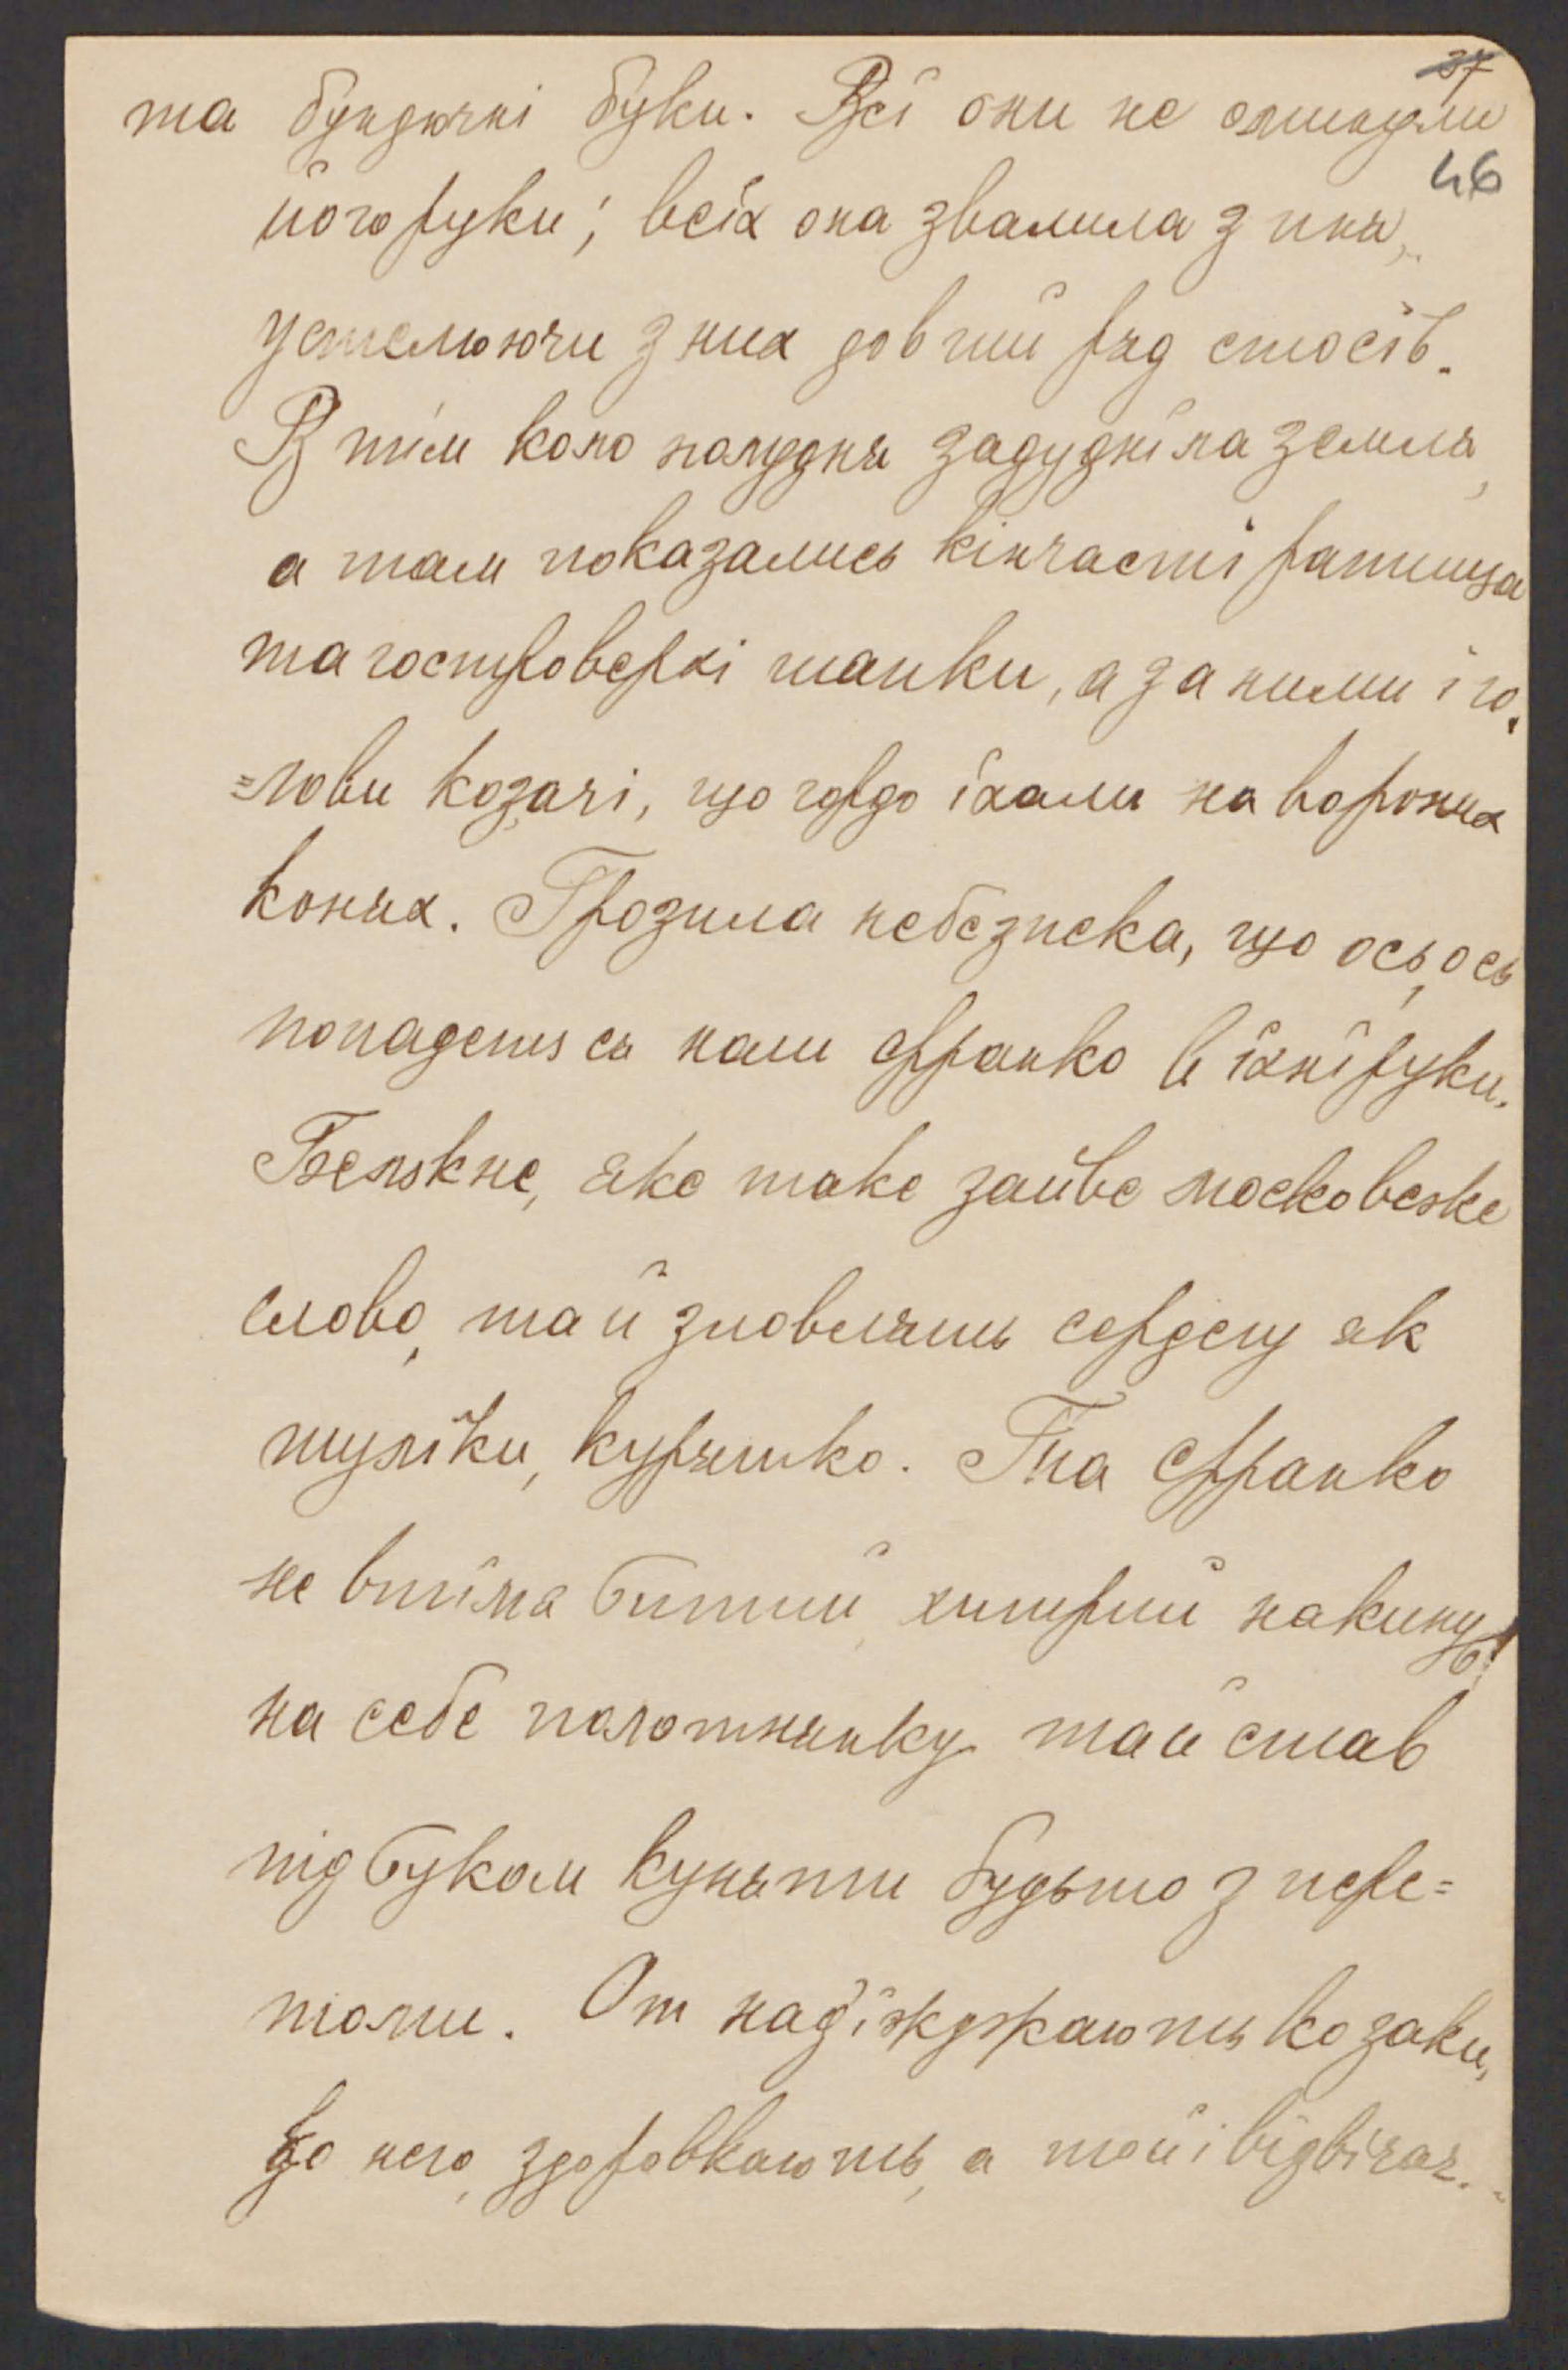 37
та бундючні буки. Всі они не оминули
46
його руки; всіх она звалила з пня,
устелюючи з них довгий ряд стосів.
В тім коло полудня задудніла земля,
а там показались кінчасті ратища
та гостроверхі шапки, а за ними і го-
=лови козачі, що гордо їхали на вороних
конях. Грозила небезпека, що ось, ось
попадеться наш Франко в їхні руки.
Бевкне, яке таке зайве московське
слово, та й зловлять сердегу як
шуліки, курятко. Та Франко
не втіма битий, хитрий накинув
на себе полотнянку та й став
під буком куняти будьто з пере=
томи. От надїжджають козаки,
до него, здоровкають, а той і відвічає.